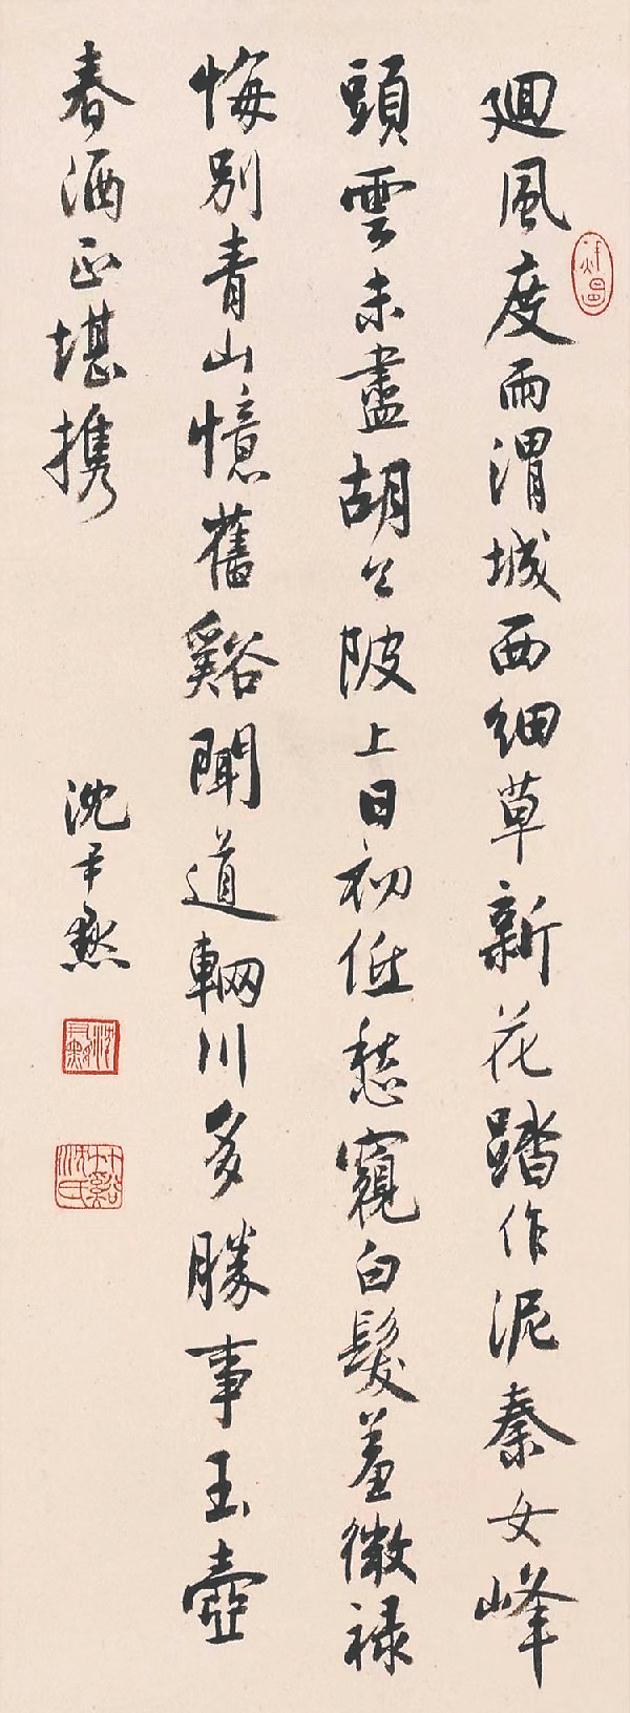 廻風度雨渭城西細草新花踏作泥秦女峰
頭雲未盡胡公陂上日初低愁窺白髮羞微祿
悔別青山憶舊谿聞道輞川多勝事玉壺
春酒正堪携
沈尹默